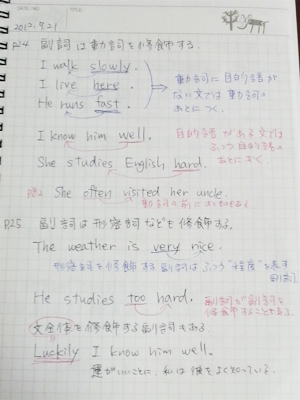 2012.9.21
P.24 副詞は動詞を修飾する。
I walk slowly.
I live here.
He runs fast.
動詞に目的語が
ない文では動詞の
あとにつく。
I know him well.
She studies English hard.
目的語がある文では
ふつう目的語の
あとにおく。
She often visited her uncle.
動詞の前に
P.25 副詞は形容詞なども修飾する。
The weather is very nice.
形容詞を修飾する副詞はふつう"程度"を表す
副詞。
He studies too hard.
副詞が副詞を
修飾することもある。
文全体を修飾する副詞もある
Luckily I know him well.
運がいいことに、私は彼をよく知っている。